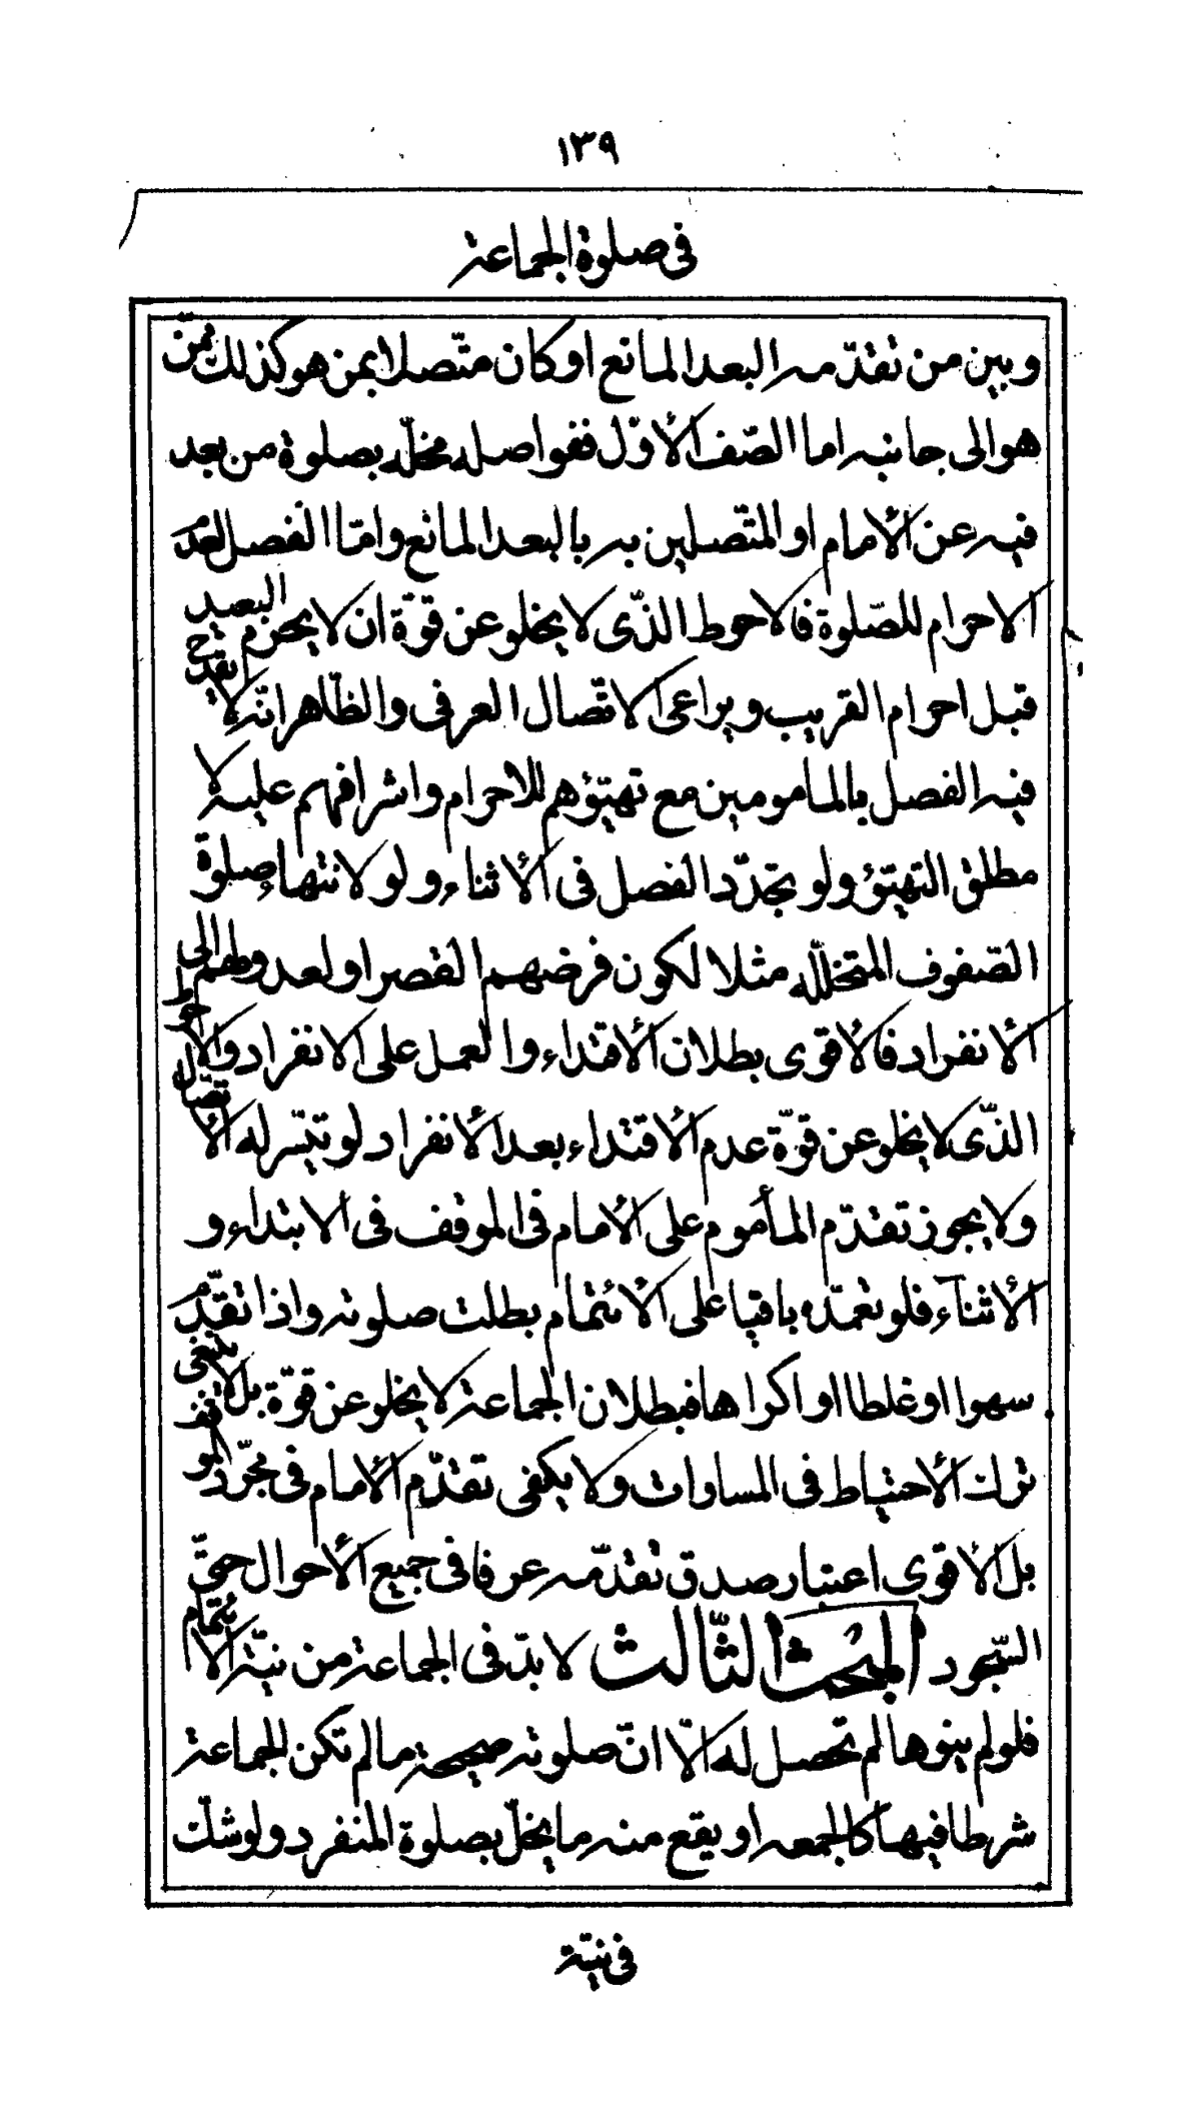 ١٣٩
فى صلوة الجماعة
وبين من تقدّمه البعد المانع او كان متّصلا بمن هو كذلك ممّن
هو الى جانبه اما الصّف الأوّل ففواصله مخلّه بصلوة من بعد
فيه عن الأمام او المتّصلين به بالبعد المانع وامّا الفصل لعدم
الاحرام للصّلوة فالاحوط الذّى لا يخلو عن قوّة ان لا يحرم البعيد
قبل احرام القريب ويراعى الاتّصال العرفى والظّاهر انّه لا يقدح
فيه الفصل بالمامومين مع تهيّؤهم للاحرام واشرافهم عليه لا
مطلق التهيّؤ ولو تجدّد الفصل فى الأثناء ولو لانتهاء صلوة
الصّفوف المتخلّله مثلا لكون فرضهم القصر او لعدولهم الى
الأنفراد فالاقوى بطلان الأقتداء والعمل على الانفراد والاحوط
الذّى لا يخلو عن قوّة عدم الأقتداء بعد الأنفراد لو تيسّر له الأتصال
ولا يجوز تقدّم المأموم على الأمام فى الموقف فى الابتداء و
الأثنآء فلو تعمّده باقيا على الأئتمام بطلت صلوته واذا تقدّم
سهوا او غلطا او اكراها فبطلان الجماعة لا يخلو عن قوّة بل لا ينبغى
ترك الأحتياط فى المساوات ولا يكفى تقدّم الأمام فى مجرّد الموقف
بل الأقوى اعتبار صدق تقدّمه عرفا فى جميع الأحوال حتّى
السّجود المبحث الثّالث لا بدّ فى الجماعة من نيّة الائتمام
فلو لم ينوها لم تحصل له الّا انّ صلوته صحيحة ما لم تكن الجماعة
شرطا فيها كالجمعه او يقع منه ما يخلّ بصلوة المنفرد ولو شكّ
فى نيّة